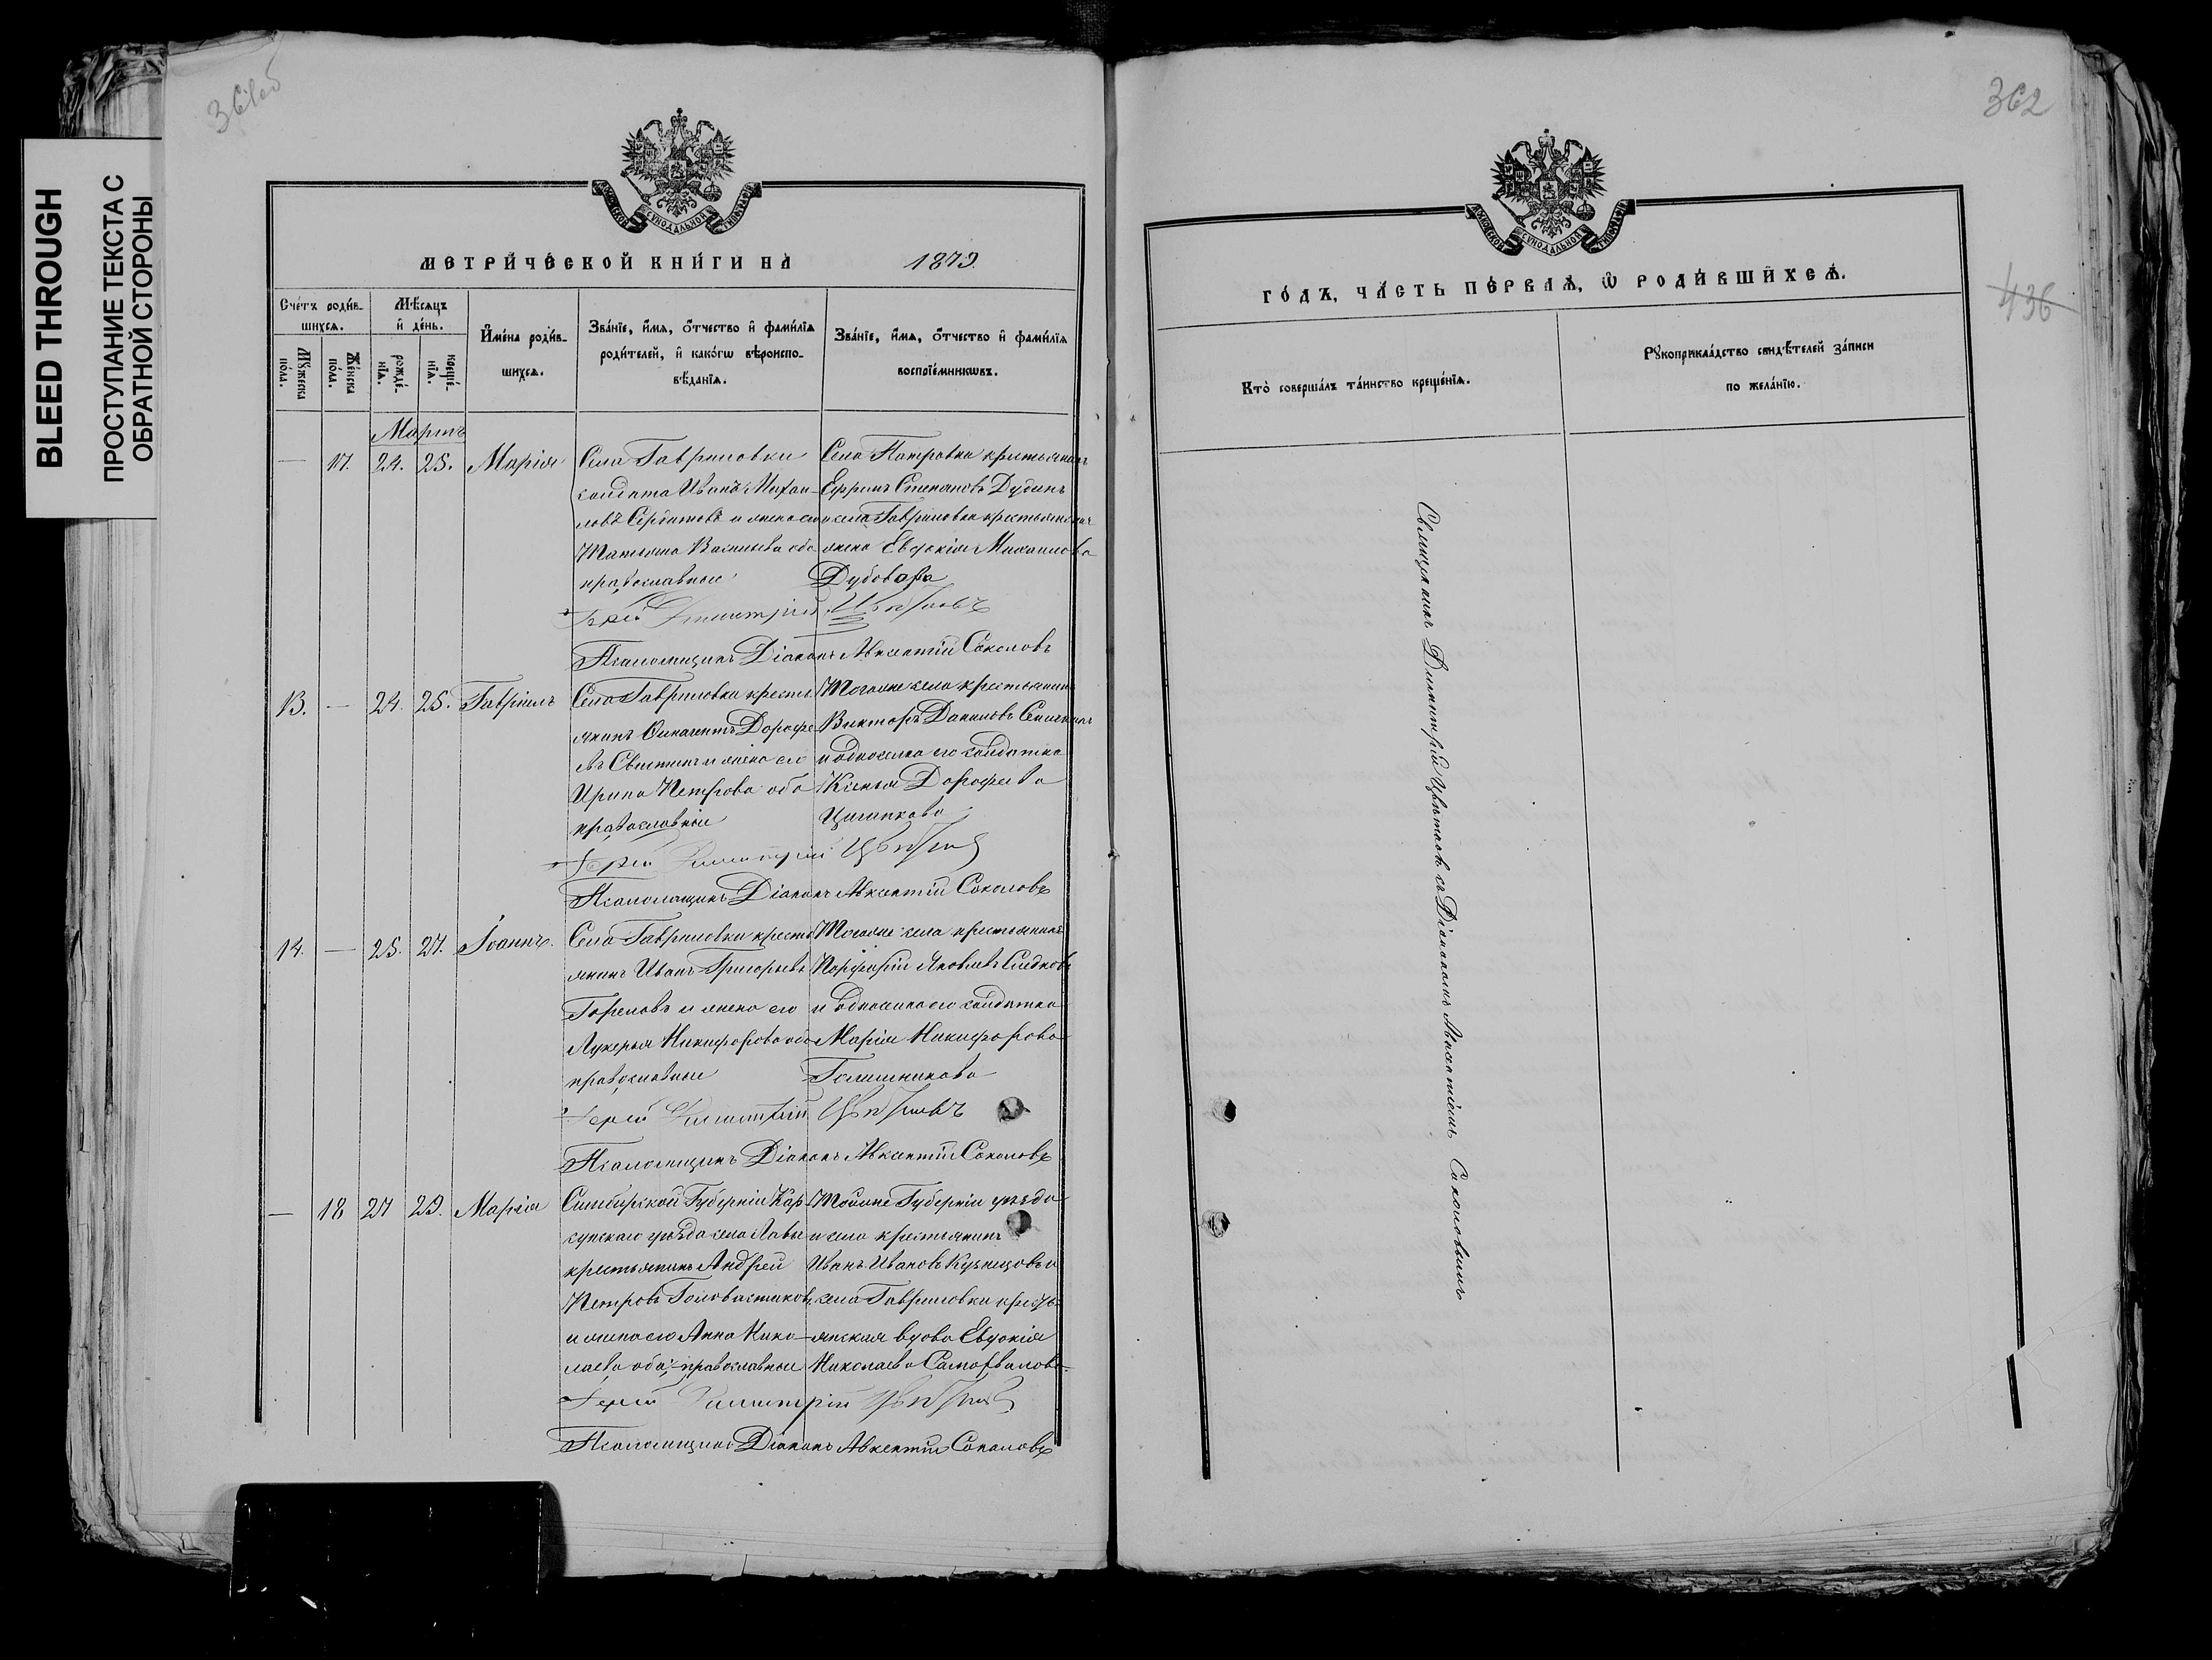 BLEED THROUGH
ПРОСТУПАНИЕ ТЕКСТА С
ОБРАТНОЙ СТОРОНЫ
361об
МОСКОВСКОЙ СѴНОДАЛЬНОЙ ТИПОГРАФІИ
МЕТРИЧЕСКОЙ КНИГИ НА 1879.
Счетъ родив-
шихся.
Мѣсяцъ
и день.
Мужеска пола.
Женска пола.
рожденія.
крещенія.
Имена родив-
шихся.
Званіе, имя, отчество и фамилія
родителей, и какогѡ вѣроиспо-
вѣданія.
Званіе, имя, отчество и фамилія
воспріемникѡвъ.
Мартъ
— 17. 24. 25. Марія
Села Гавриловки
солдатъ Иванъ Михаи-
ловъ и жена его
Татьяна Васильева оба
православные
Села Петровки крестьянинъ
Степановъ
и села Гавриловки крестьянская
жена Евдокія Михаилова
Дубовова
Іерей Димитрій Цвѣтковъ
Псаломщикъ Діаконъ Авксентій Соколовъ
13. — 24. 25. Гавріилъ
Села Гавриловки кресть
янинъ Дорофе
евъ и жена его
Ирина Петрова оба
православные
Тогоже села крестьянинъ
Викторъ Даниловъ
и односелка его солдатка
Ксенія Дорофеева
Цыганкова
Іерей Димитрій Цвѣтковъ
Псаломщикъ Діаконъ Авксентій Соколовъ
14. — 25. 27. Іоаннъ.
Села Гавриловки кресть
янинъ Иванъ Григорьевъ
Гореловъ и жена его
Лукерья Никифорова оба
православные
Тогоже села крестьянинъ
Порфирій Яковлевъ
и односелка его солдатка
Марія Никифорова
Іерей Димитрій Цвѣтковъ
Псаломщикъ Діаконъ Авксентій Соколовъ
— 18 27 29. Марія
Симбирской Губерніи Кар
сунскаго уѣзда села Лавы
крестьянинъ Андрей
Петровъ Головастиковъ
и жена его Анна Нико
лаева оба православные
Тойже Губерніи уѣзда
и села крестьянинъ
Иванъ Ивановъ Кузнецовъ и
села Гавриловки кресть
янская вдова Евдокія
Николаева Самохвалова.
Іерей Димитрій Цвѣтковъ
Псаломщикъ Діаконъ Авксентій Соколовъ
362
436
МОСКОВСКОЙ СѴНОДАЛЬНОЙ ТИПОГРАФІИ
ГОДЪ, ЧАСТЬ ПЕРВАЯ, Ѡ РОДИВШИХСЯ.
Кто совершалъ таинство крещенія.
Рукоприкладство свидѣтелей записи
по желанію.
Священникъ Димитрій Цвѣтковъ съ Діакономъ Авксентіемъ Соколовымъ